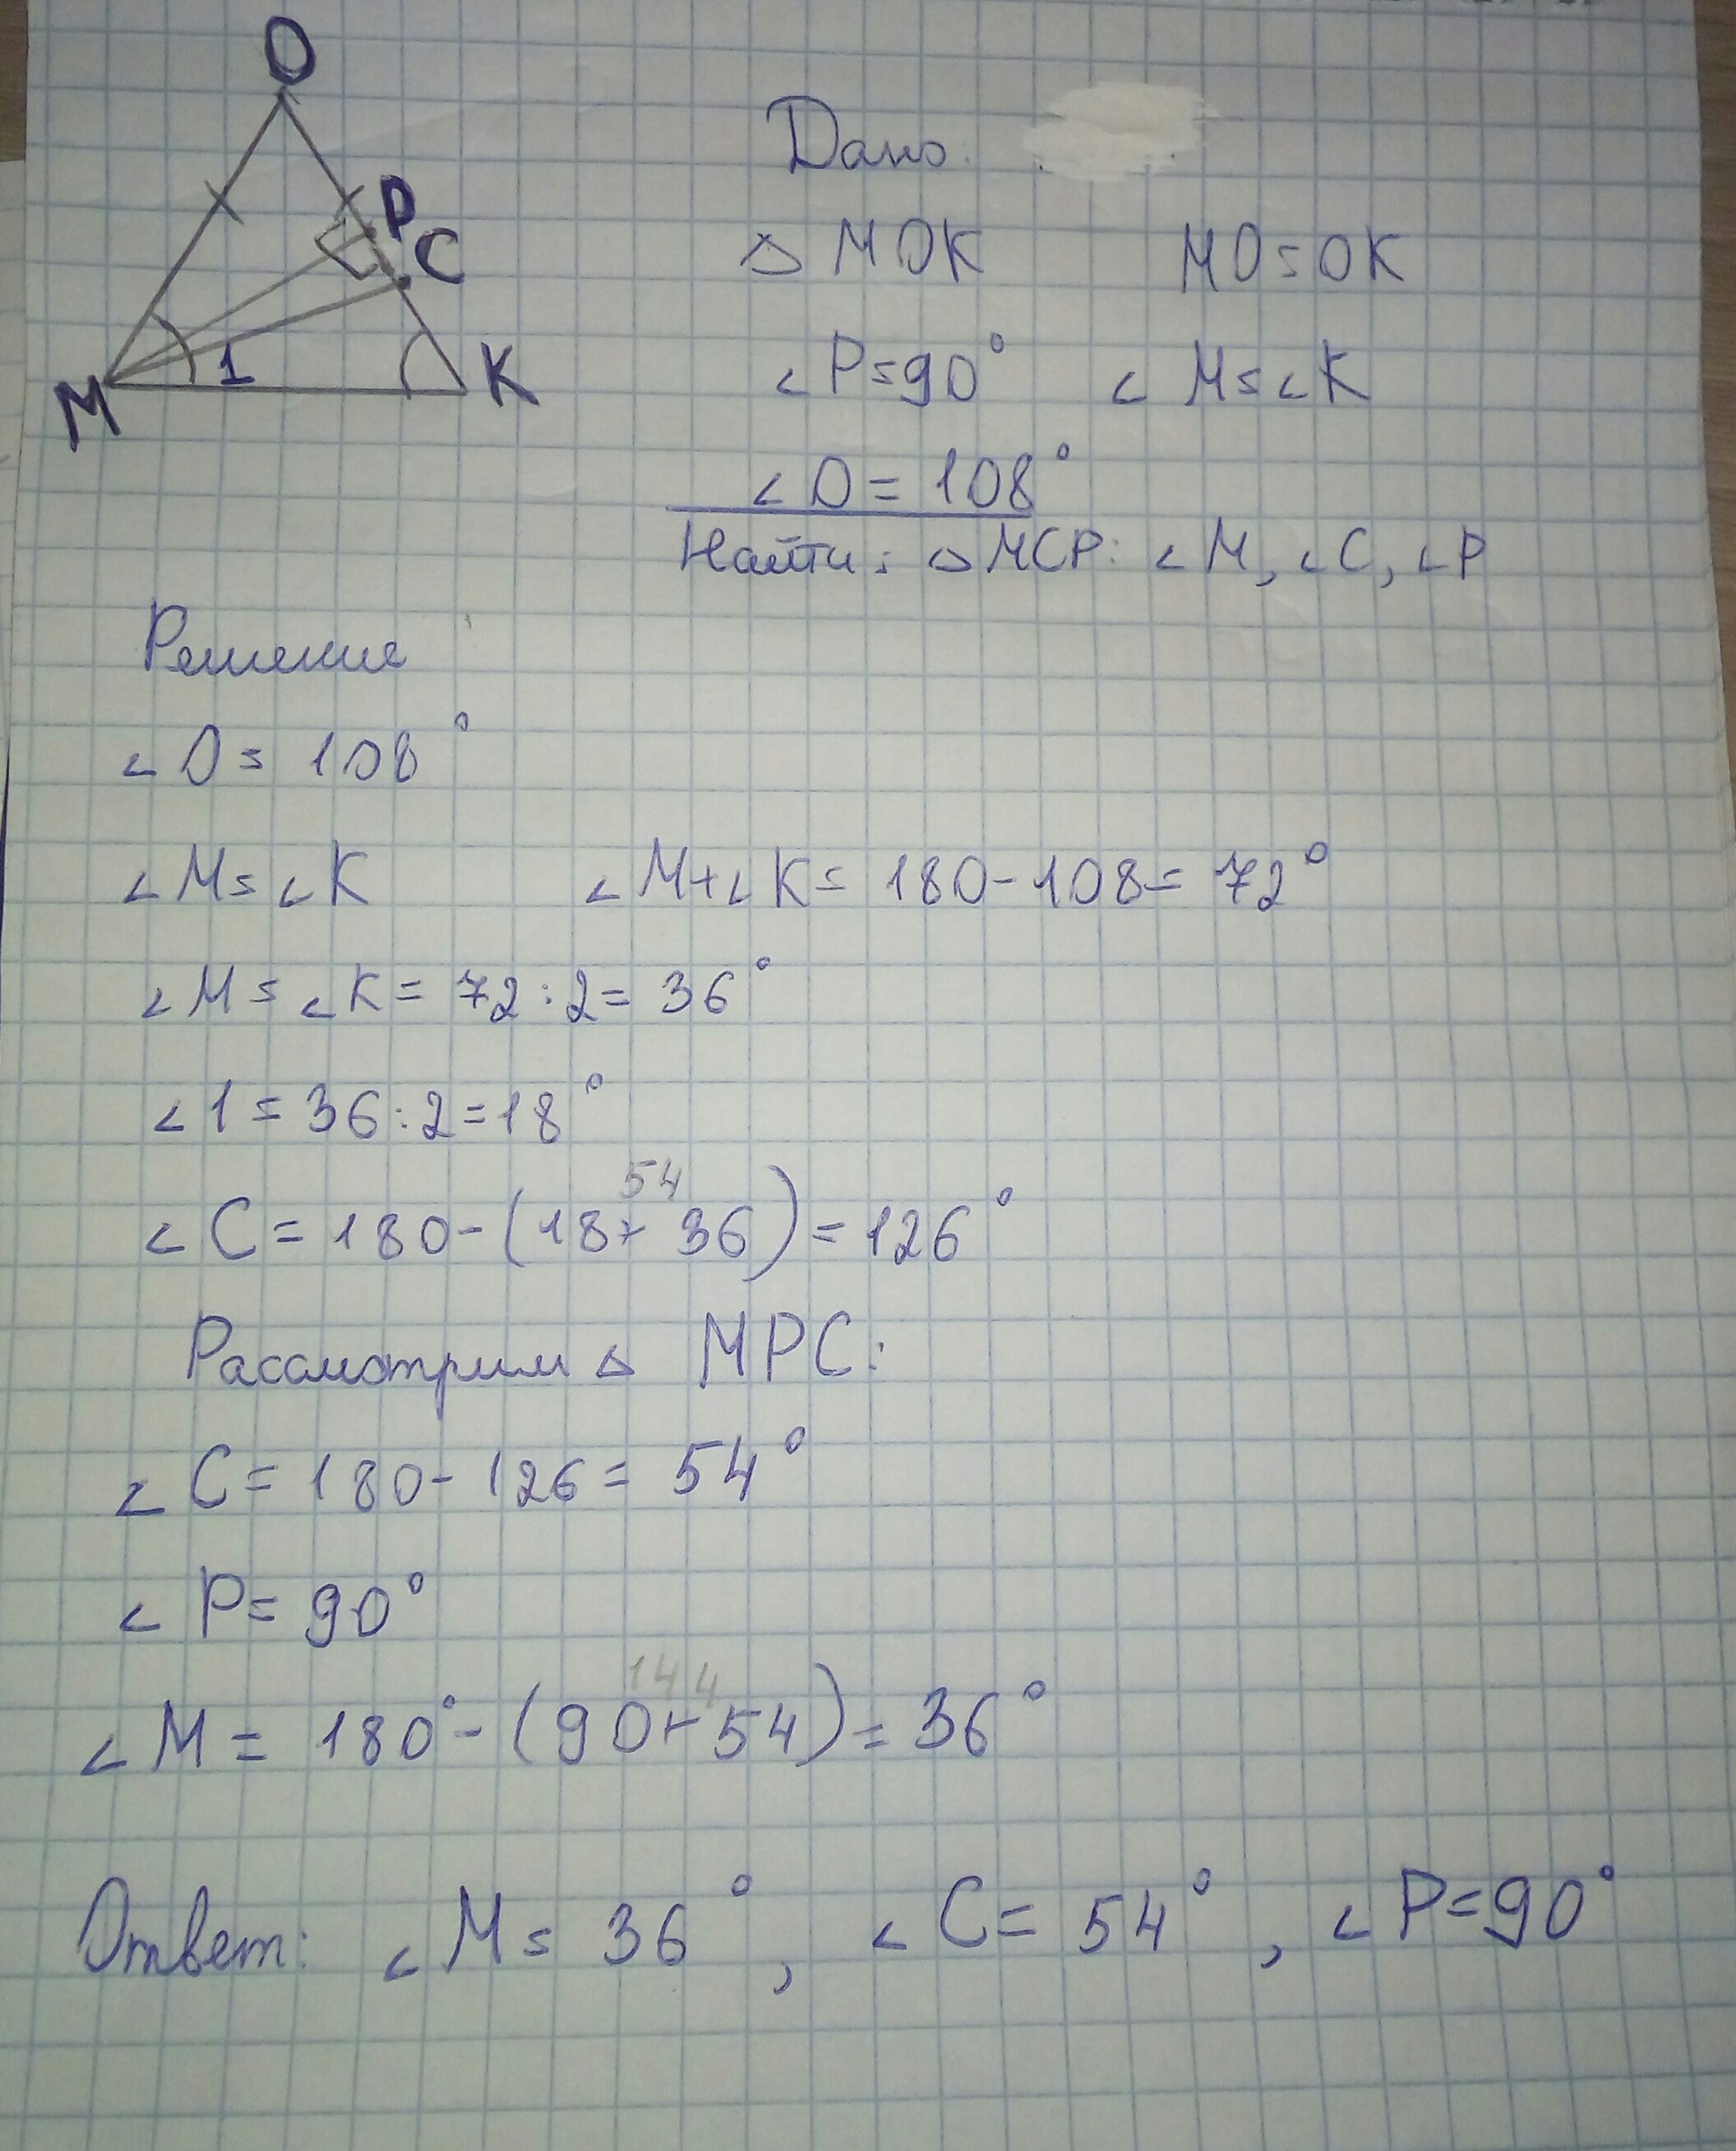 O
P
C
1
M
K
Дано
△ MOK MO=OK
∠P=90° ∠M=∠K
∠O=108°
Найти: △MCP: ∠M, ∠C, ∠P
Решение
∠O=108°
∠M=∠K ∠M+∠K=180-108=72°
∠M=∠K=72:2=36°
∠1=36:2=18°
54
∠C=180-(18+36)=126°
Рассмотрим △ MPC:
∠C=180-126=54°
∠P=90°
144
∠M=180°-(90+54)=36°
Ответ: ∠M=36°, ∠C=54°, ∠P=90°